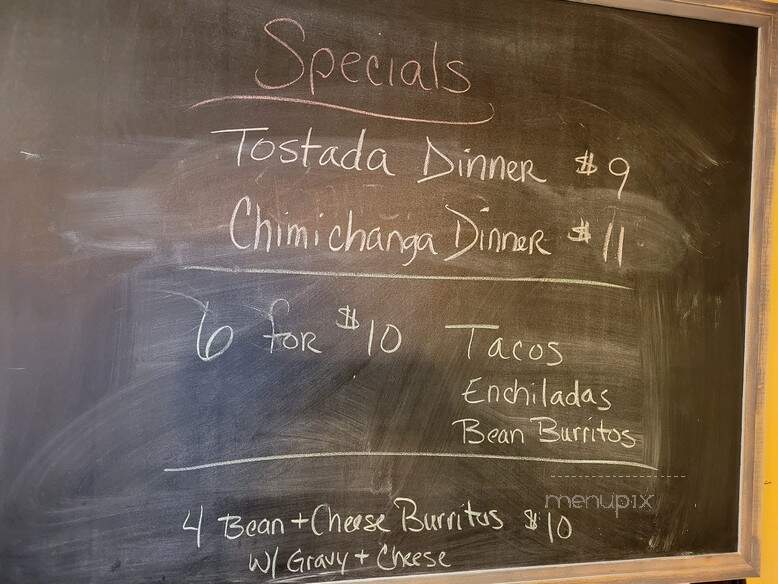 Specials
Tostada Dinner $9
Chimichanga Dinner $11
6 for $10 Tacos
Enchiladas
Bean Burritos
menupix
4 Bean + Cheese Burritos $10
w/ Gravy + Cheese